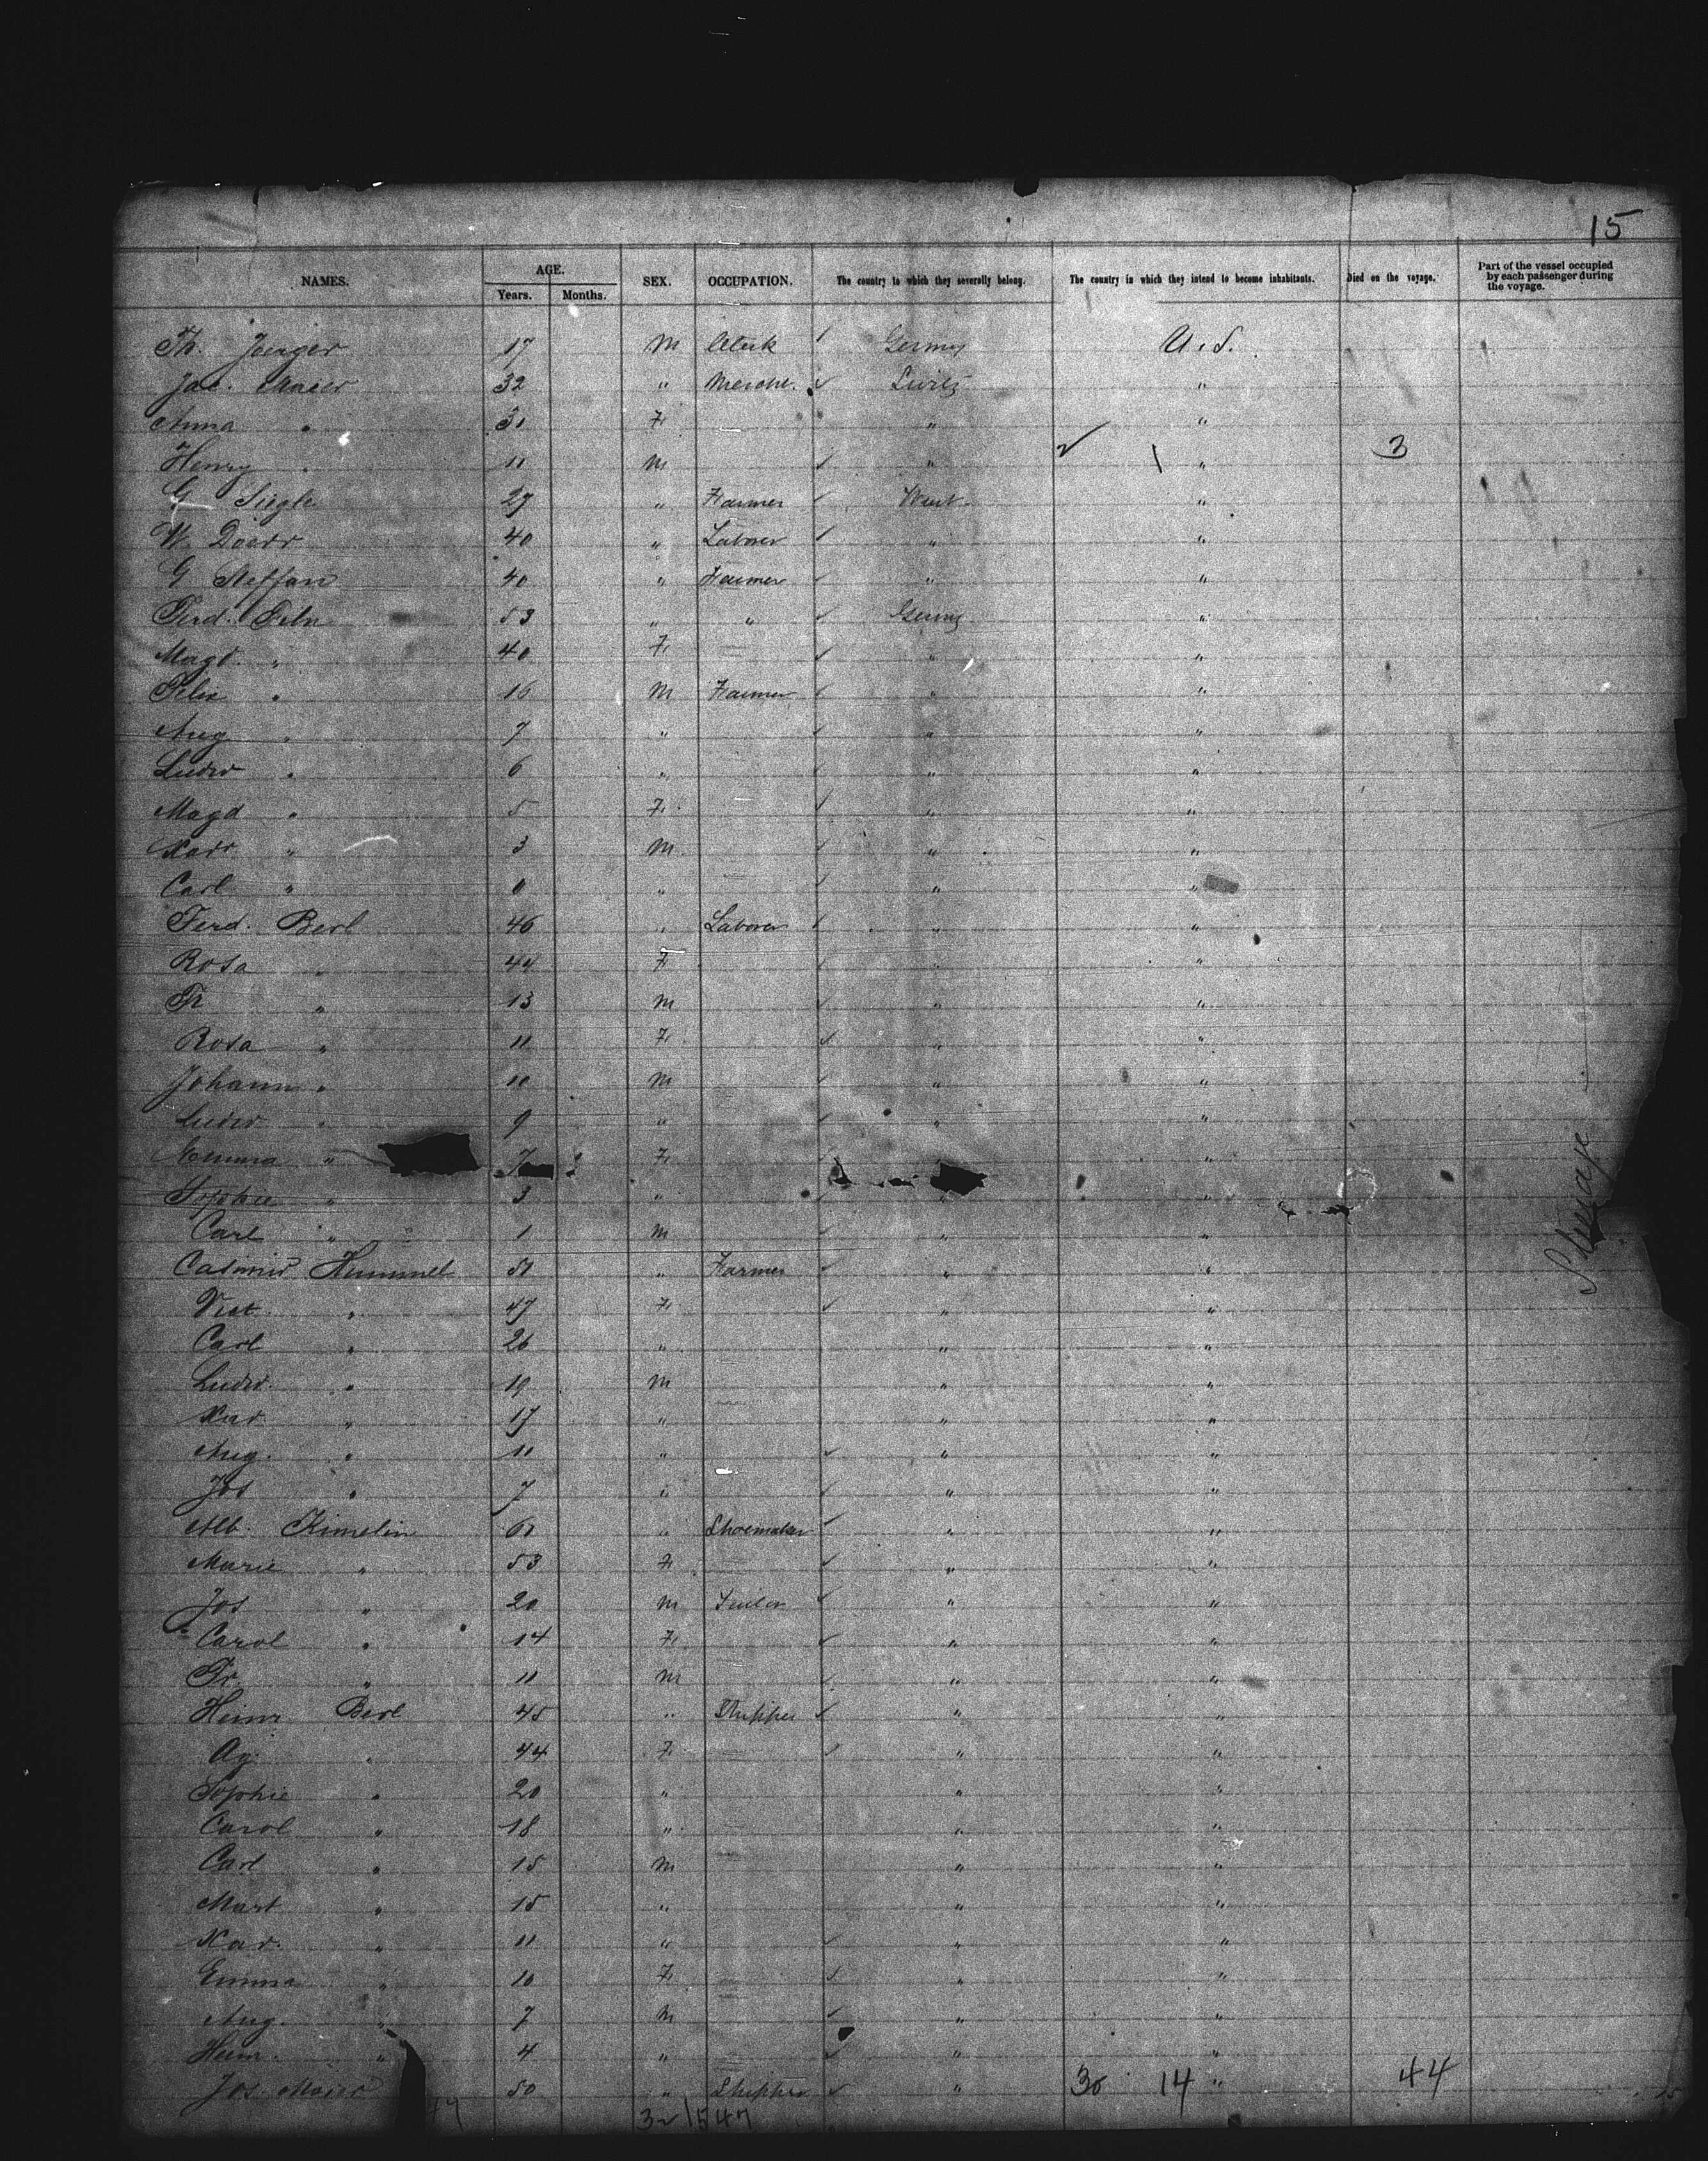 15
NAMES. AGE. Years. Months. SEX. OCCUPATION. The country to which they severally belong. The country in which they intend to become inhabitants. Died on the voyage. Part of the vessel occupied by each passenger during the voyage.
Th. Joerger 17 M Clerk Germy U.S.
Jac. Maier 32 " Mercht. Switz "
Anna " 31 F " "
Henry " 11 M " " 3
G Siegle 27 " Farmer Wurt "
W. Doerr 40 " Laborer " "
G Steffan 40 " Farmer " "
Ferd. 53 " " Germy "
Magd. " 40 F " "
16 M Farmer " "
Aug " 7 " " "
Ludw " 6 " " "
Magd " 5 F " "
3 M " "
Carl " " " "
Ferd. Berl 46 " Laborer " "
Rosa " 44 F " "
Fr " 13 M " "
Rosa " 11 F " "
Johann " 10 M " "
Ludw " 9 " " "
" 7 F "
Sophie " 3 " "
Carl " 1 M " "
Casimir Hummel 51 " Farmer " "
Vict. " 47 F " "
Carl " 26 " " "
Ludw. " 19 M " "
Xav " 17 " " "
Aug. " 11 " " "
Jos " 7 " " "
Alb. Kimelin 61 " Shoemaker " "
Marie " 53 F " "
Jos " 20 M " "
Carol " 14 F " "
Fr. " 11 M " "
Heinr Berl 45 " " "
Ag. " 44 F " "
Sophie " 20 " " "
Carol " 18 " " "
Carl " 15 M " "
Mart " 15 " " "
Xav. " 11 " " "
Emma " 10 F " "
Aug. " 7 M " "
Heinr. " 4 " " "
Jos. Maier 50 " " 30 14 " 44
47 32 1547